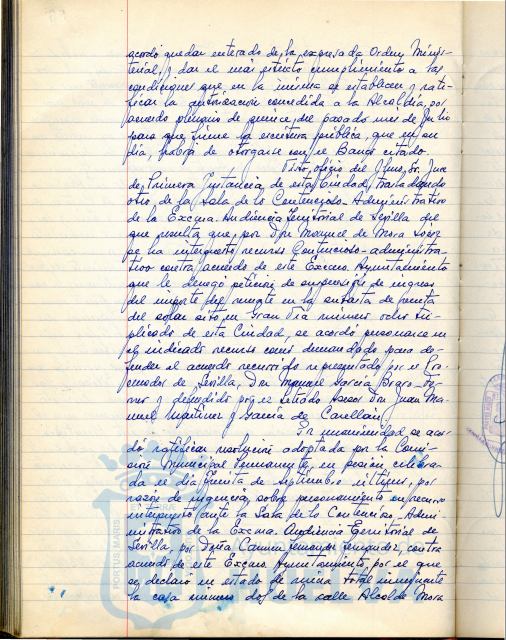 acordó quedar enterado de la expresada Orden Minis-
terial, y dar el más estricto cumplimiento a las
condiciones que en la misma se establecen y rati-
ficar la autorización concedida a la Alcaldía, por
acuerdo plenario de quince del pasado mes de Julio
para que firme la escritura pública, que en su
día, habrá de otorgarse con el Banco citado.
Visto, oficio del Ilmo. Sr. Juez
de Primera Instancia de esta Ciudad, trasladando
otro de la Sala de lo Contencioso-Administrativo
de la Excma. Audiencia Territorial de Sevilla del
que resulta que por Don Manuel de Mora
se ha interpuesto recurso Contencioso-administra-
tivo contra acuerdo de este Excmo. Ayuntamiento
que le denegó petición de suspensión de ingreso
del importe del remate en la subasta de venta
del solar sito en Gran Vía número ocho du-
plicado de esta Ciudad, se acordó personarse en
el indicado recurso como demandado para de-
fender el acuerdo recurrido representado por el Pro-
curador de Sevilla, Don Manuel García Bravo-Fe-
rrer y defendido por el Letrado Asesor Don Juan Ma-
nuel Martínez y García de
Por unanimidad se acor-
dó ratificar resolución adoptada por la Comi-
sión Municipal Permanente, en sesión celebra-
da el día treinta de Septiembre último, por
razón de urgencia, sobre personamiento en recurso
interpuesto ante la Sala de lo Contencioso, Admi-
nistrativo de la Excma. Audiencia Territorial de
Sevilla, por Doña Carmen Fernández Fernández, contra
acuerdo de este Excmo. Ayuntamiento, por el que
se declaró en estado de ruina total inminente
la casa número dos de la calle Alcalde Mora
PORTUS MARIS